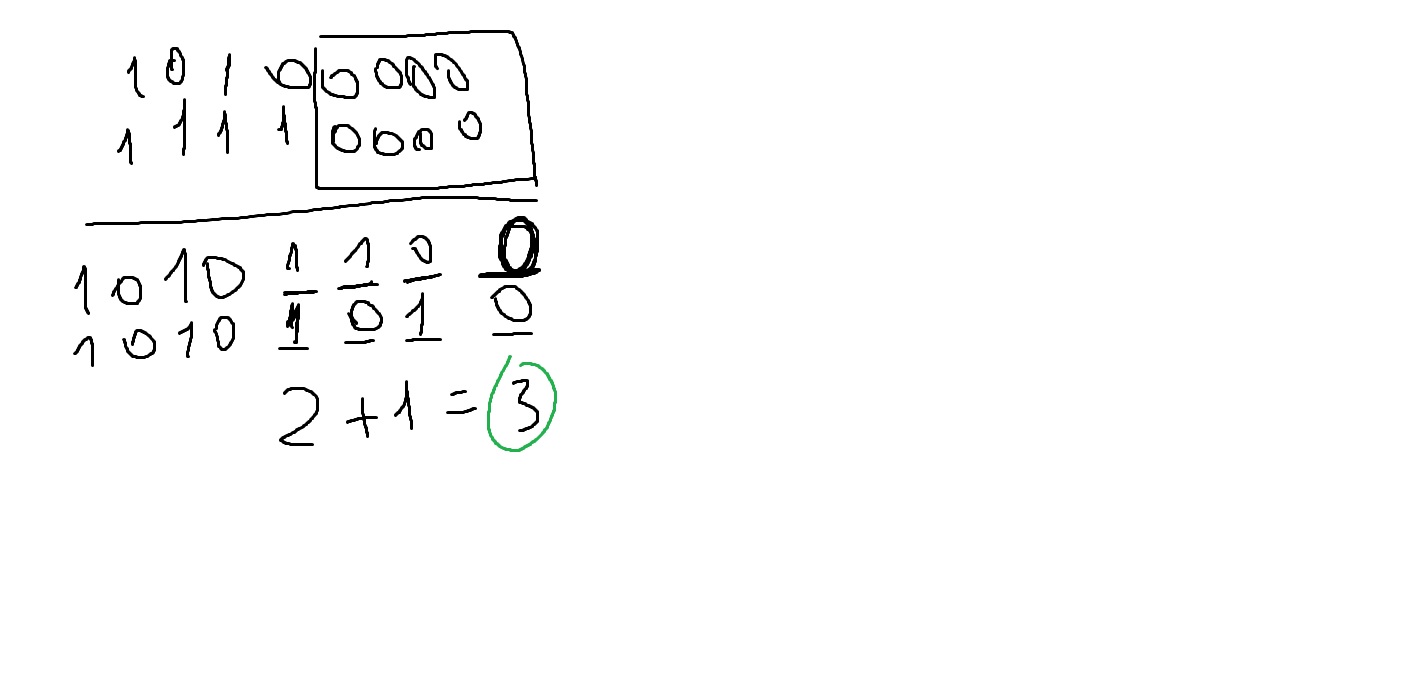 1 0 1 0 0 0 0 0
1 1 1 1 0 0 0 0
1 0 1 0 1 1 0 0
1 0 1 0 1 0 1 0
2 + 1 = 3